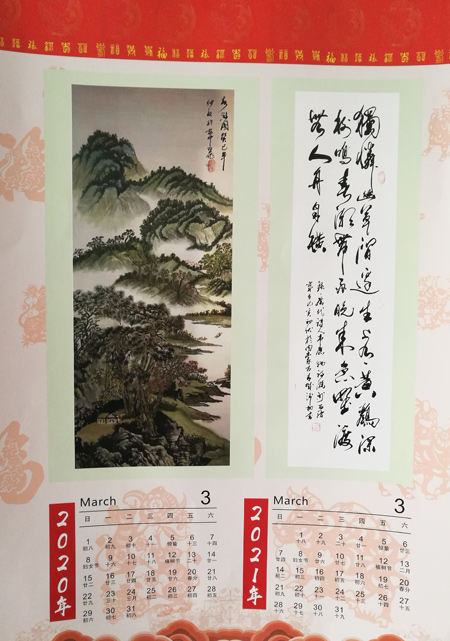 獨憐幽草澗邊生上有黃鸝深
樹鳴春潮帶雨晚來急野渡
無人舟自橫
2020年
March 3
日 一 二 三 四 五 六
1 2 3 4 5 6 7
初八 初九 初十 十一 惊蛰 十三 十四
8 9 10 11 12 13 14
妇女节 十六 十七 十八 植树节 二十 廿一
15 16 17 18 19 20 21
廿二 廿三 廿四 廿五 廿六 春分 廿八
22 23 24 25 26 27 28
廿九 三十 三月 初二 初三 初四 初五
29 30 31
初六 初七 初八
2021年
March 3
日 一 二 三 四 五 六
1 2 3 4 5 6
十八 十九 二十 廿一 惊蛰 廿三
7 8 9 10 11 12 13
廿四 妇女节 廿六 廿七 廿八 植树节 二月
14 15 16 17 18 19 20
初二 初三 初四 初五 初六 初七 春分
21 22 23 24 25 26 27
初九 初十 十一 十二 十三 十四 十五
28 29 30 31
十六 十七 十八 十九